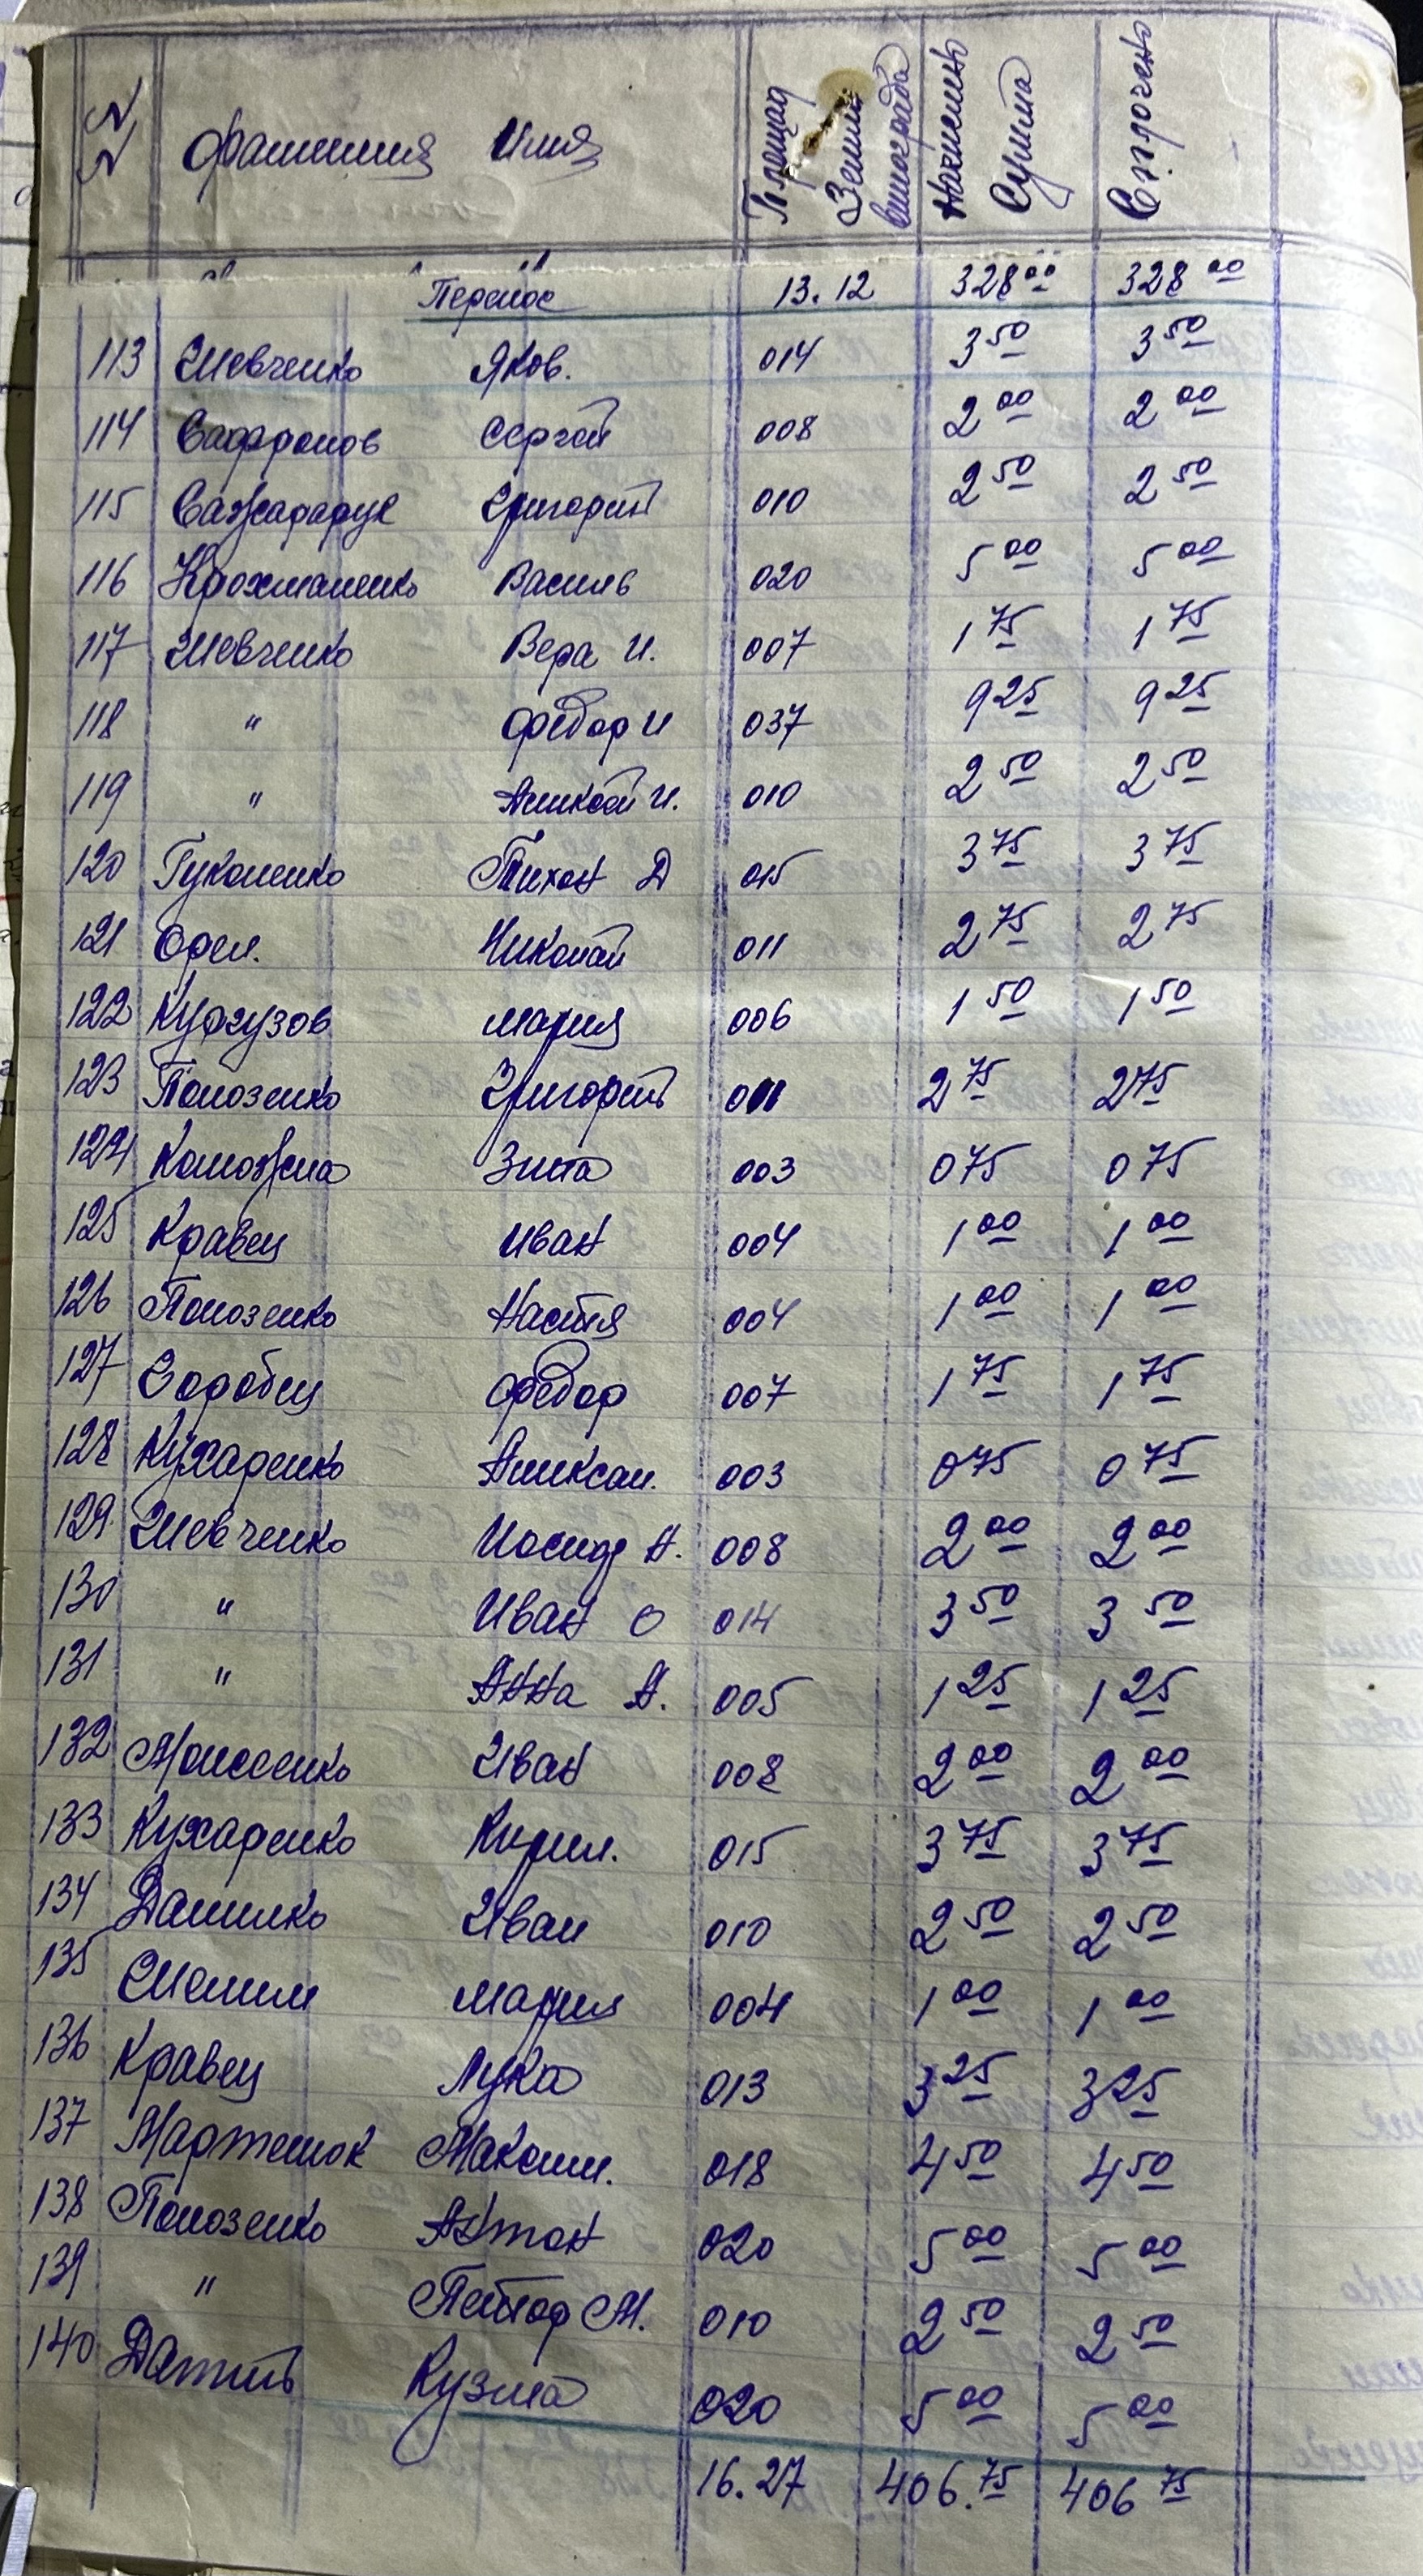 № Фамилия Имя Площад Земли винограда Начислено Сумма Сплочено
Перенос 13.12 328 00 328 00
113 Шевченко Яков. 014 3 50 3 50
114 Сафронов Сергей 008 2 00 2 00
115 Григорий 010 2 50 2 50
116 Крохмаленко Василь 020 5 00 5 00
117 Шевченко Вера И. 007 1 75 1 75
118 " Федор И 037 9 25 9 25
119 " Аликсей И. 010 2 50 2 50
120 Гуколенко Тихон Д 015 3 75 3 75
121 Орел. Николай 011 2 75 2 75
122 Кургузов Мария 006 1 50 1 50
123 Полозенко Григорий 011 2 75 2 75
124 Зина 003 0 75 0 75
125 Кравец Иван 004 1 00 1 00
126 Полозенко Настя 004 1 00 1 00
127 Горобец Федор 007 1 75 1 75
128 Кухаренко Аликсан. 003 0 75 0 75
129 Шевченко Иосиф А. 008 2 00 2 00
130 " Иван О 014 3 50 3 50
131 " Анна А. 005 1 25 1 25
132 Моисеенко Иван 008 2 00 2 00
133 Кухаренко Кирил. 015 3 75 3 75
134 Данилко Иван 010 2 50 2 50
135 Мария 004 1 00 1 00
136 Кравец Лука 013 3 25 3 25
137 Мартенюк Максим. 018 4 50 4 50
138 Полозенко Антон 020 5 00 5 00
139 " Петор М. 010 2 50 2 50
140 Кузма 020 5 00 5 00
16.27 406.75 406 75